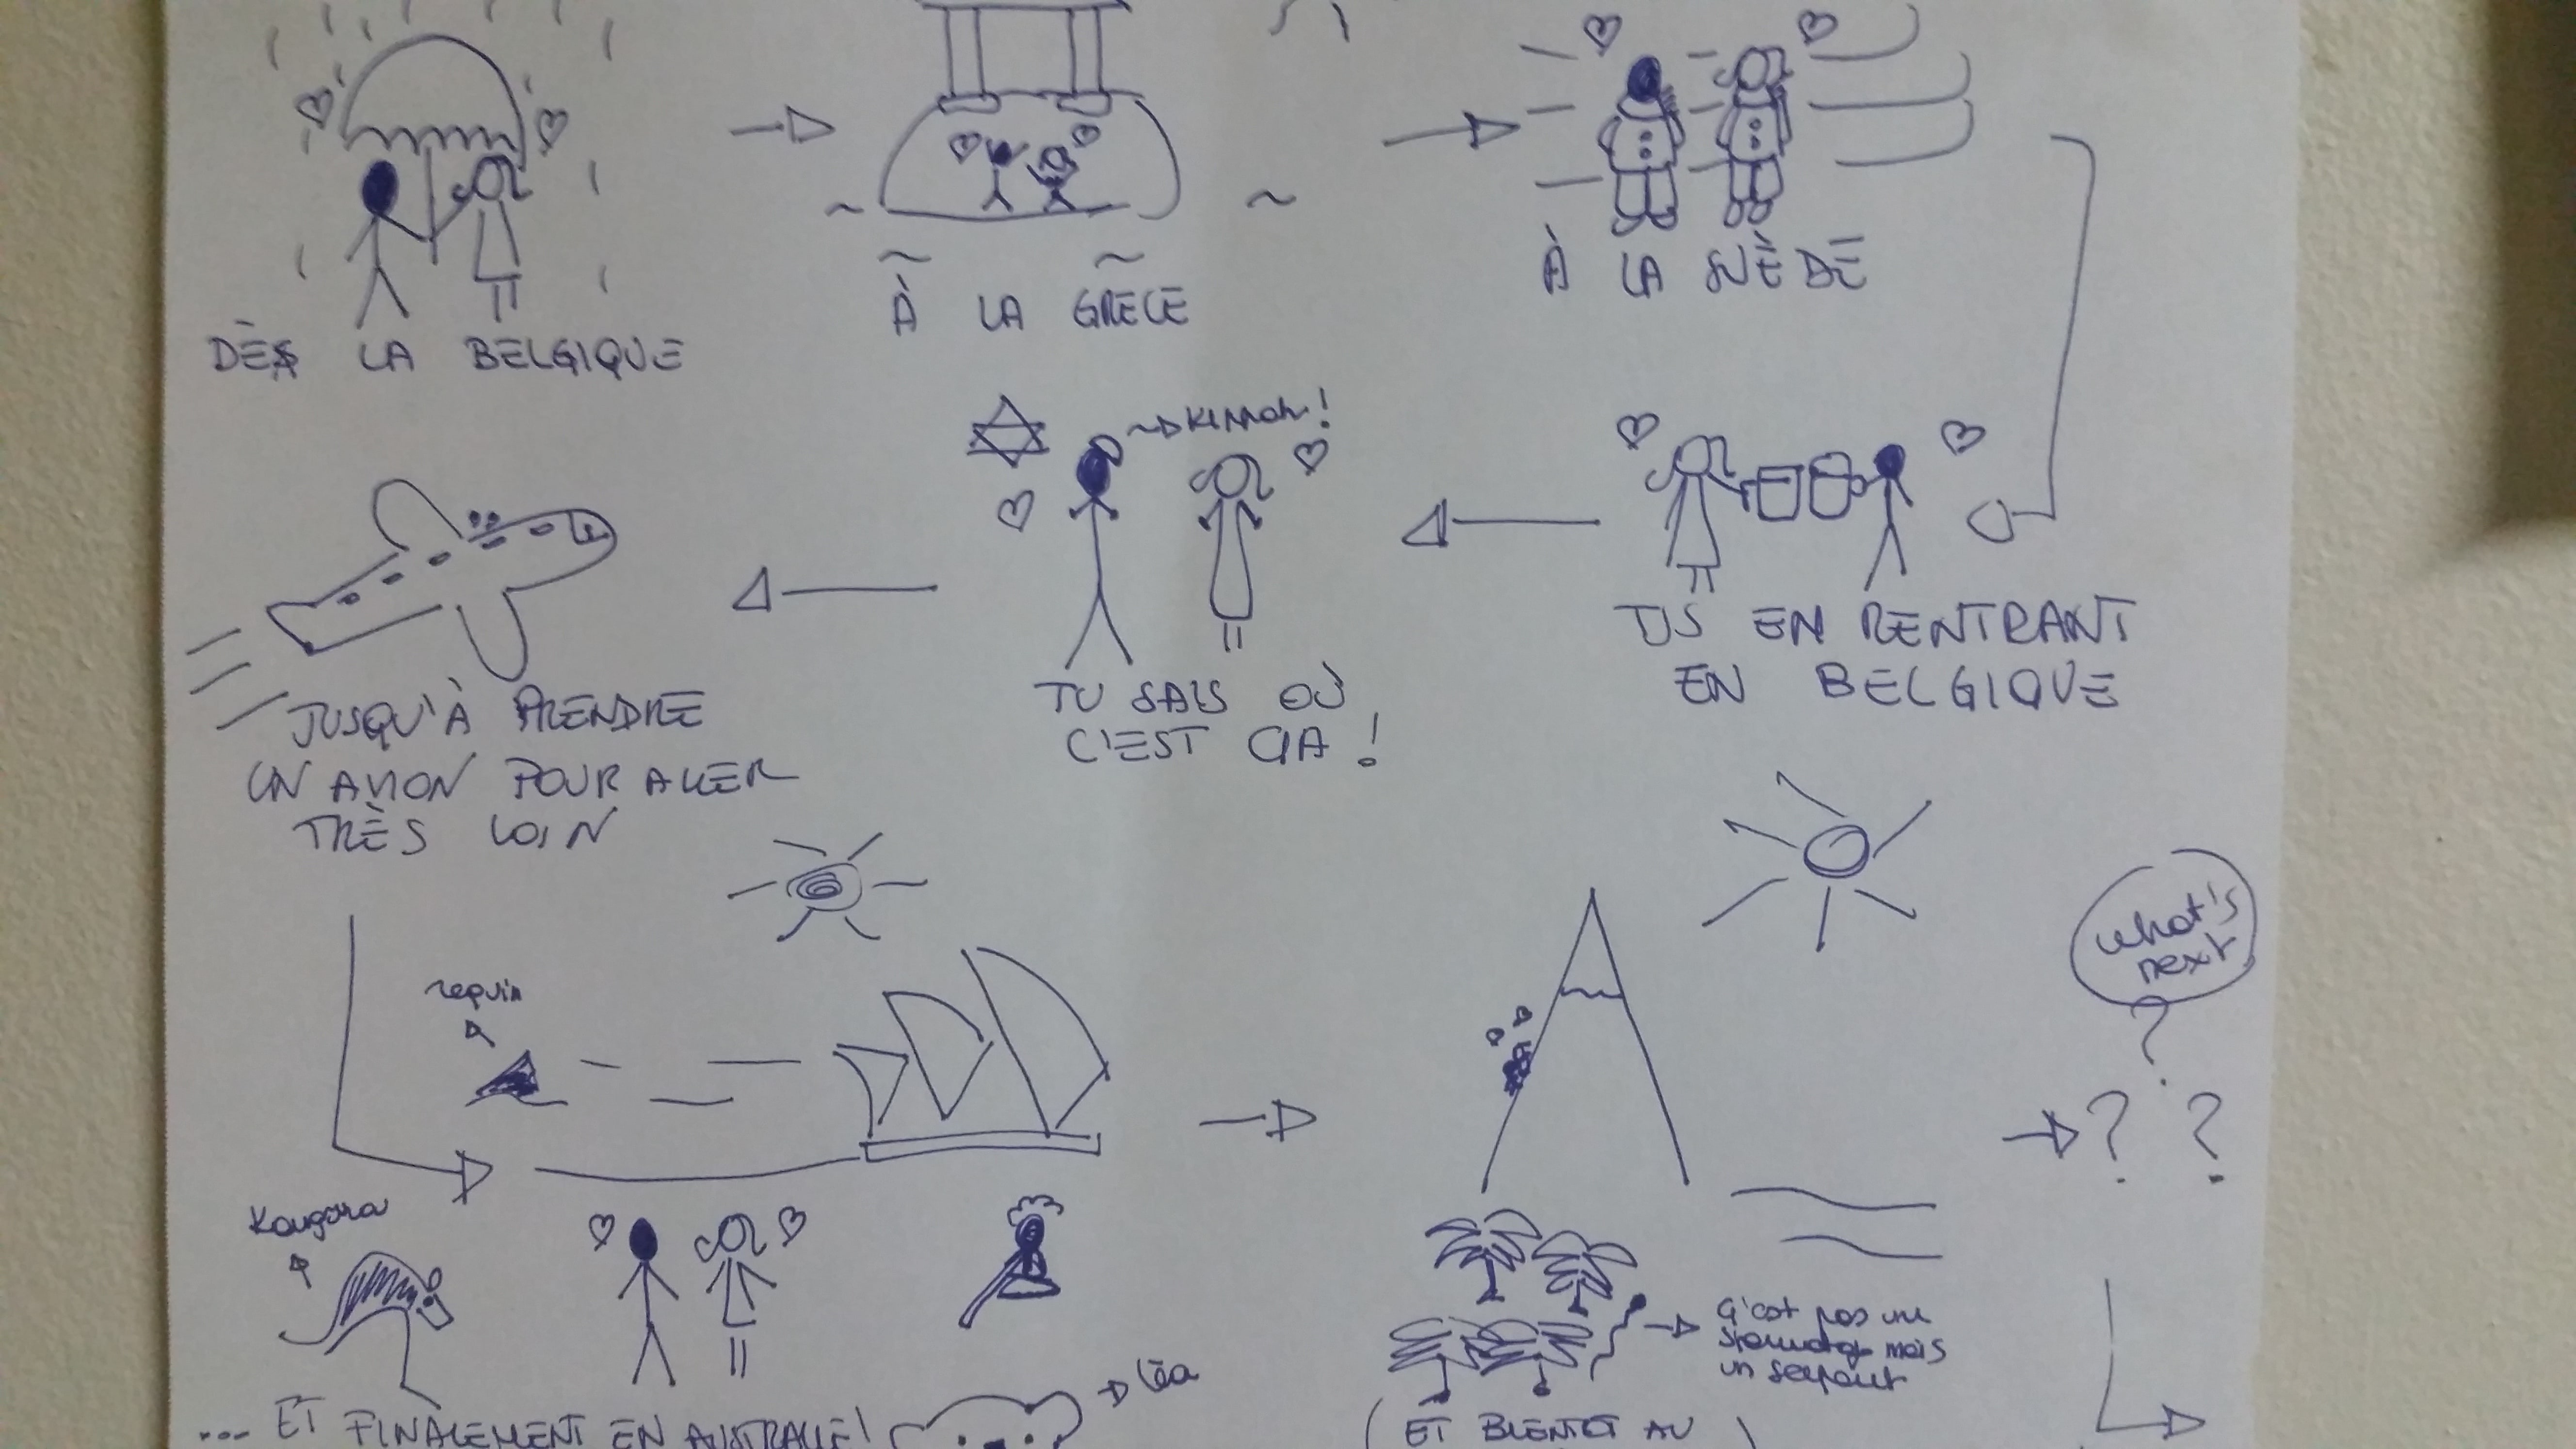 DÈS LA BELGIQUE
À LA GRECE
À LA SUÈDE
TJS EN RENTRANT
EN BELGIQUE
KIPPAH!
TU SAIS OÙ
C'EST ÇA!
JUSQU'À PRENDRE
UN AVION POUR ALLER
TRÈS LOIN
requin
Kangoroo
... ET FINALEMENT EN AUSTRALIE!
Léa
Ç'est pas un
mais
un serpent
(ET BIENTOT AU )
what's
next
?
? ?